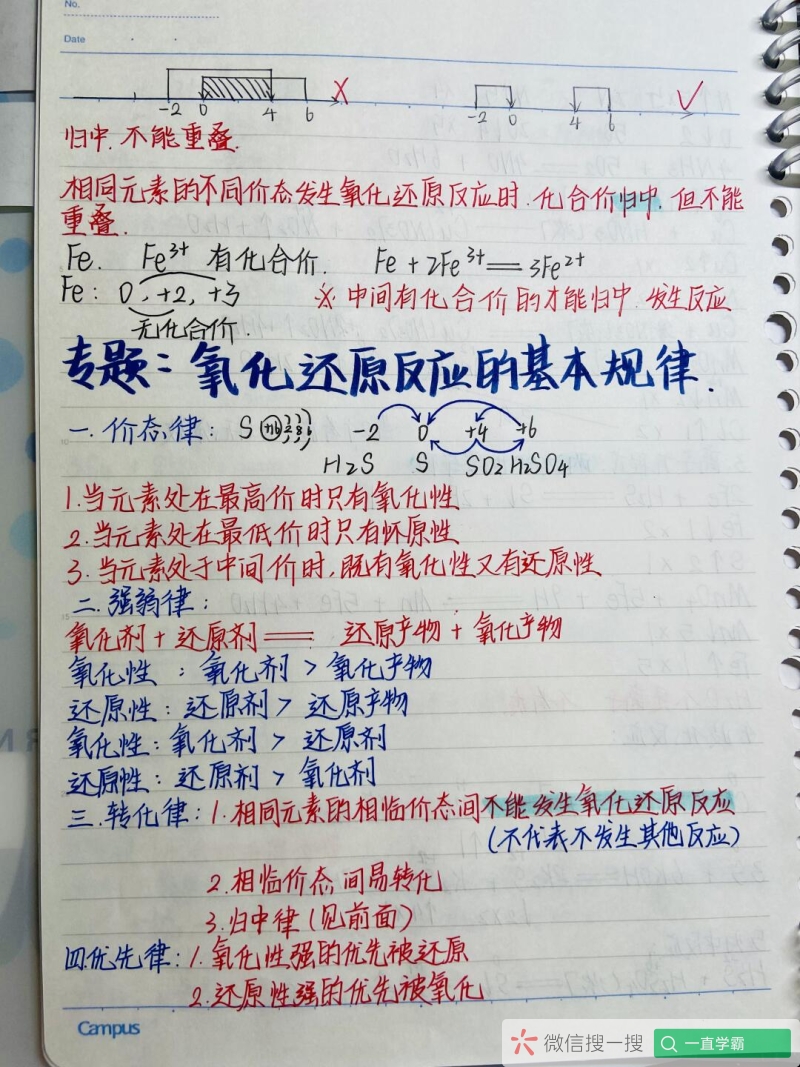 No.
Date
-2 0 4 6 × -2 0 4 6 ✓
归中.不能重叠.
相同元素的不同价态发生氧化还原反应时.化合价归中.但不能
重叠.
Fe. Fe³⁺ 有化合价. Fe + 2Fe³⁺ == 3Fe²⁺
Fe: 0, +2, +3 ※中间有化合价的才能归中.发生反应
无化合价.
专题:氧化还原反应的基本规律.
一.价态律: S +16 2 8 6 -2 0 +4 +6
H₂S S SO₂ H₂SO₄
1.当元素处在最高价时只有氧化性
2.当元素处在最低价时只有怀原性
3.当元素处于中间价时,既有氧化性又有还原性
二.强弱律:
氧化剂 + 还原剂 == 还原产物 + 氧化产物
氧化性:氧化剂 > 氧化产物
还原性:还原剂 > 还原产物
氧化性:氧化剂 > 还原剂
还原性:还原剂 > 氧化剂
三.转化律: 1.相同元素的相临价态间不能发生氧化还原反应
(不代表不发生其他反应)
2.相临价态间易转化
3.归中律(见前面)
四.优先律: 1.氧化性强的优先被还原
2.还原性强的优先被氧化
Campus
微信搜一搜 一直学霸